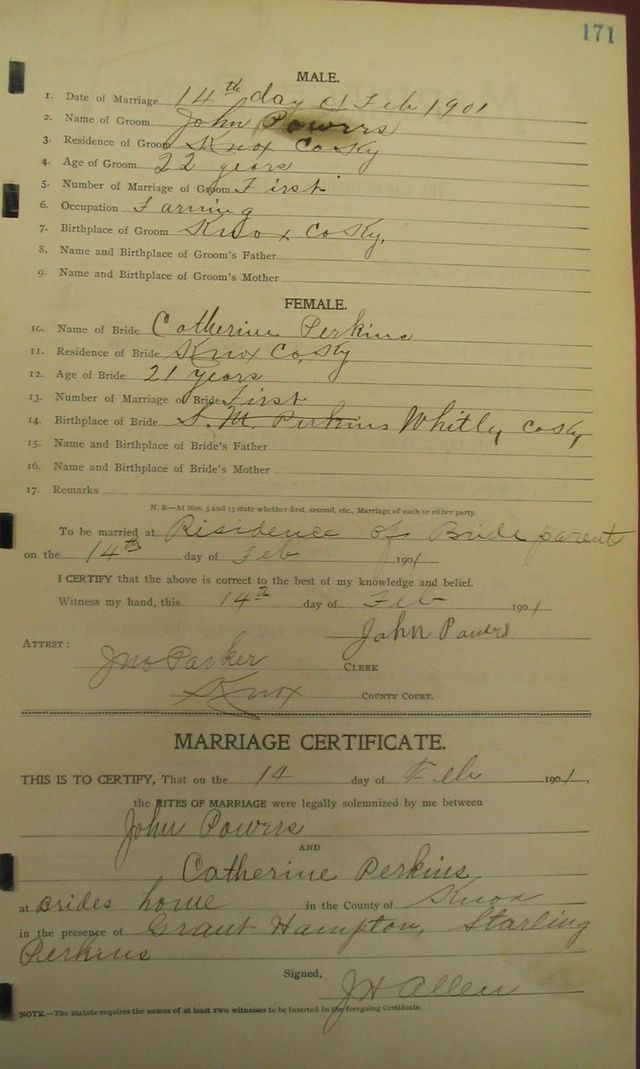 171
MALE.
1. Date of Marriage 14th day of Feb 1901
2. Name of Groom John Powers
3. Residence of Groom Knox Co Ky
4. Age of Groom 22 years
5. Number of Marriage of Groom First
6. Occupation Farming
7. Birthplace of Groom Knox Co Ky,
8. Name and Birthplace of Groom's Father
9. Name and Birthplace of Groom's Mother
FEMALE.
10. Name of Bride Catherine Perkins
11. Residence of Bride Knox Co, Ky
12. Age of Bride 21 years
13. Number of Marriage of Bride First
14. Birthplace of Bride S. M. Perkins Whitley Co Ky
15. Name and Birthplace of Bride's Father
16. Name and Birthplace of Bride's Mother
17. Remarks
N. B.—At Nos. 5 and 13 state whether first, second, etc., Marriage of each or either party.
To be married at Risidence of Bride parent
on the 14th day of Feb 1901
I CERTIFY that the above is correct to the best of my knowledge and belief.
Witness my hand, this 14th day of Feb 1901
John Powers
ATTEST:
Jno Parker CLERK
Knox COUNTY COURT.
MARRIAGE CERTIFICATE.
THIS IS TO CERTIFY, That on the 14 day of Feb 1901.
the RITES OF MARRIAGE were legally solemnized by me between
John Powers
AND
Catherine Perkins
at Brides home in the County of Knox
in the presence of Grant Hampton, Starling
Perkins
Signed,
J H Allen
NOTE.—The Statute requires the names of at least two witnesses to be inserted in the foregoing Certificate.